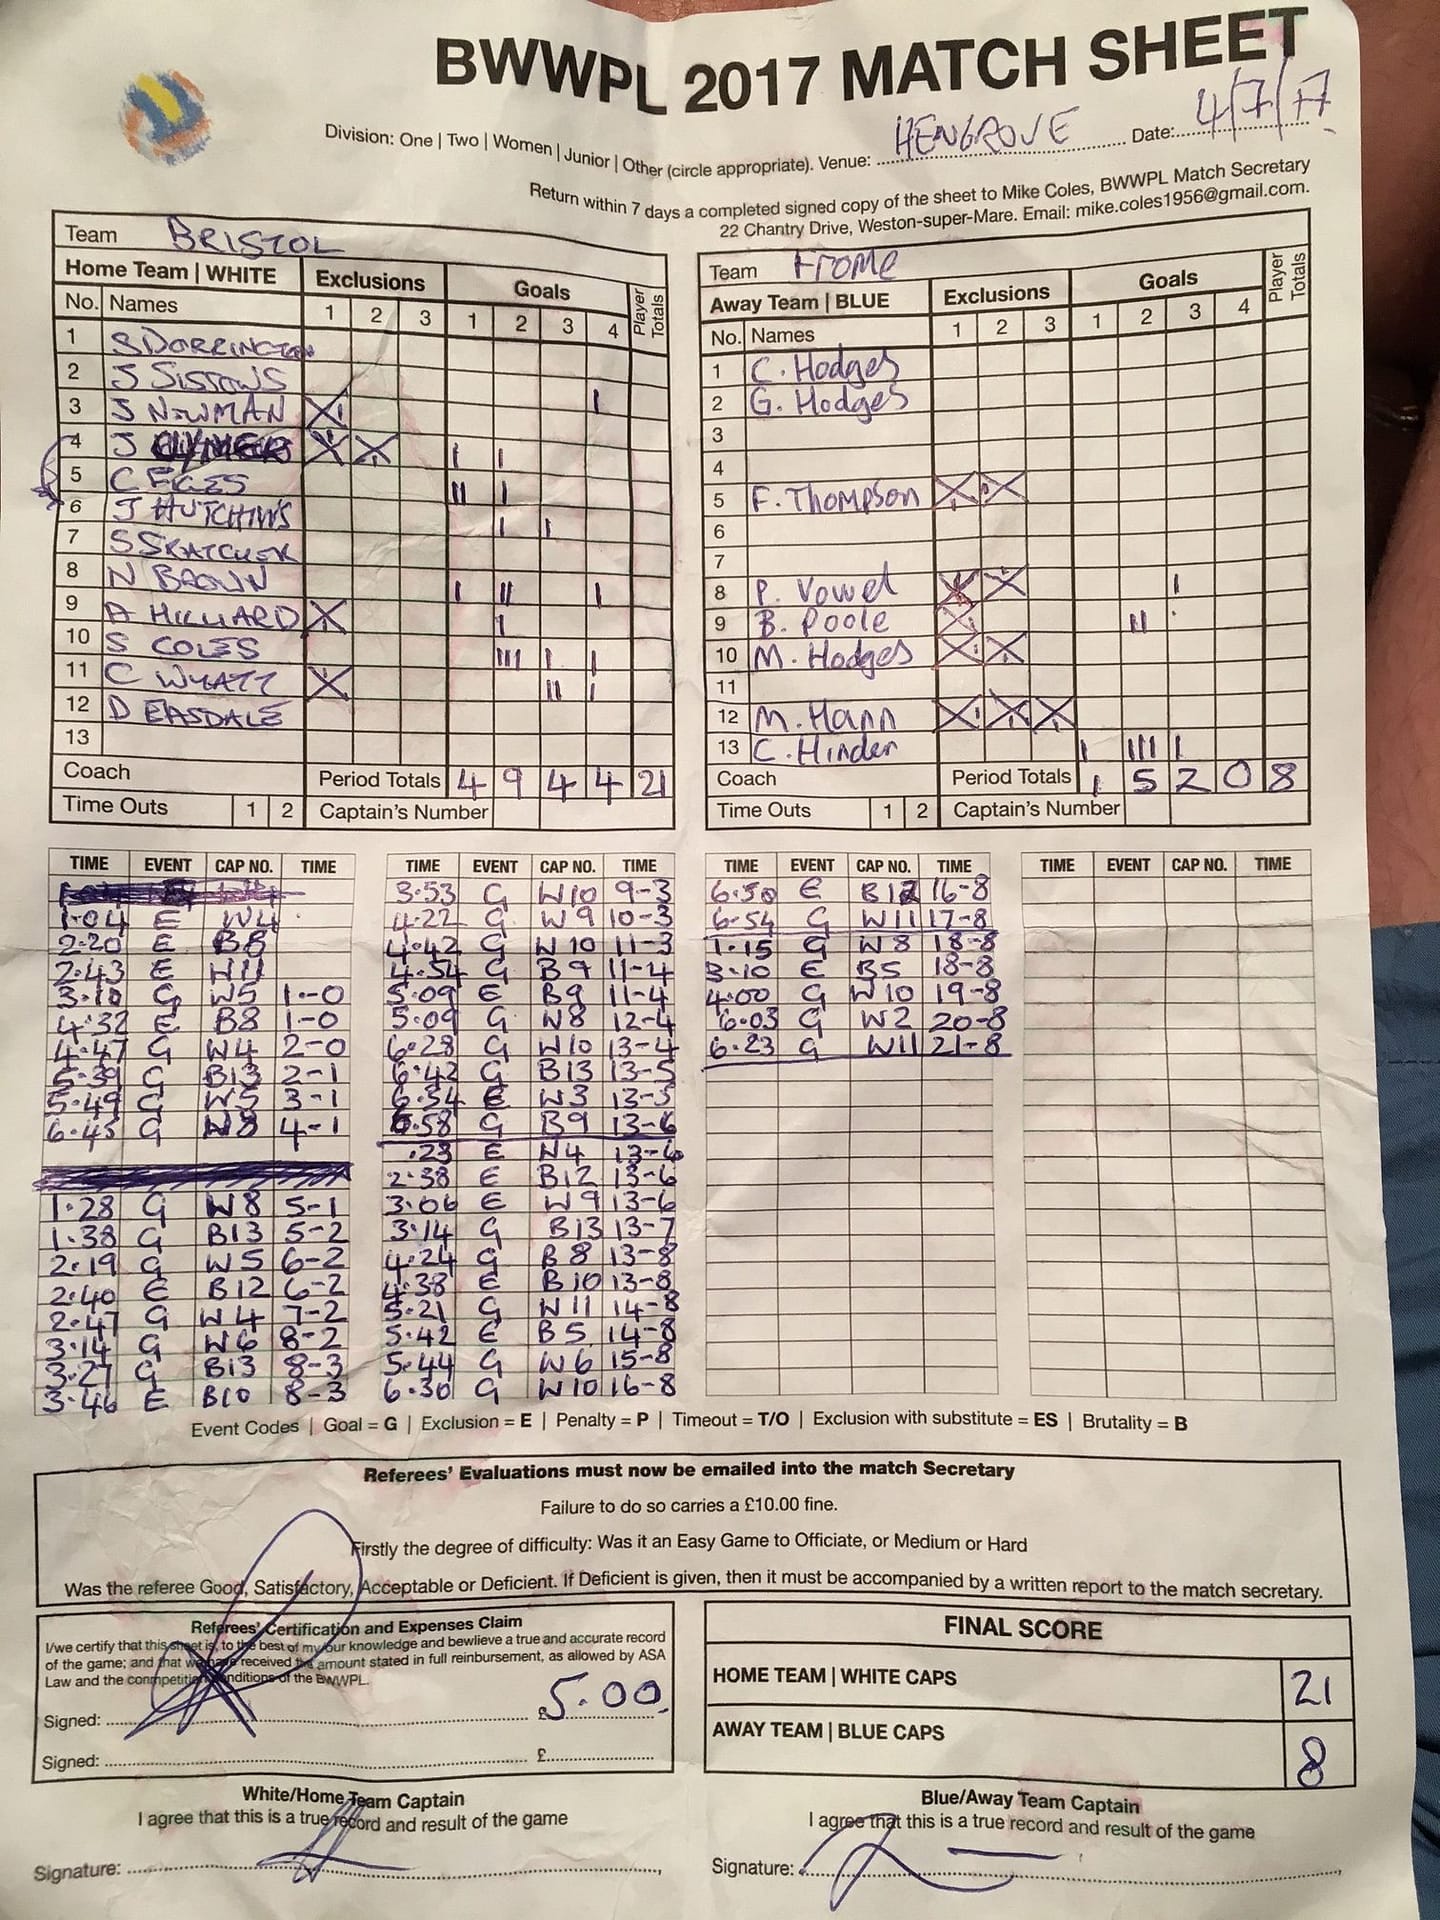 BWWPL 2017 MATCH SHEET
Division: One | Two | Women | Junior | Other (circle appropriate). Venue: HENGROVE Date: 4/7/17
Return within 7 days a completed signed copy of the sheet to Mike Coles, BWWPL Match Secretary
22 Chantry Drive, Weston-super-Mare. Email: mike.coles1956@gmail.com.
Team BRISTOL
Home Team | WHITE Exclusions Goals Player Totals
No. Names 1 2 3 1 2 3 4
1 S DORRINGTON
2 J SISTONS
3 J NEWMAN X I
4 J X X I I
5 C EGES II I
6 J HUTCHINS I I
7 S SKATCHER
8 N BROWN I II I
9 A HILLIARD X I
10 S COLES III I I
11 C WYATT X II I
12 D EASDALE
13
Coach Period Totals 4 9 4 4 21
Time Outs 1 2 Captain's Number
Team Frome
Away Team | BLUE Exclusions Goals Player Totals
No. Names 1 2 3 1 2 3 4
1 C. Hodges
2 G. Hodges
3
4
5 F. Thompson X X
6
7
8 P. Vowel X X I
9 B. Poole X II
10 M. Hodges X X
11
12 M. Hann X X X
13 C. Hinder I III I
Coach Period Totals 1 5 2 0 8
Time Outs 1 2 Captain's Number
TIME EVENT CAP NO. TIME
1.04 E W4
2.20 E B8
2.43 E W11
3.10 G W5 1-0
4.32 E B8 1-0
4.47 G W4 2-0
5.39 G B13 2-1
5.49 G W5 3-1
6.45 G W8 4-1
1.28 G W8 5-1
1.38 G B13 5-2
2.19 G W5 6-2
2.40 E B12 6-2
2.47 G W4 7-2
3.14 G W6 8-2
3.27 G B13 8-3
3.46 E B10 8-3
TIME EVENT CAP NO. TIME
3.53 G W10 9-3
4.22 G W9 10-3
4.42 G W10 11-3
4.54 G B9 11-4
5.09 E B9 11-4
5.09 G W8 12-4
6.28 G W10 13-4
6.42 G B13 13-5
6.54 E W3 13-5
6.58 G B9 13-6
.23 E W4 13-6
2.38 E B12 13-6
3.06 E W9 13-6
3.14 G B13 13-7
4.24 G B8 13-8
4.38 E B10 13-8
5.21 G W11 14-8
5.42 E B5 14-8
5.44 G W6 15-8
6.30 G W10 16-8
TIME EVENT CAP NO. TIME
6.50 E B12 16-8
6.54 G W11 17-8
1.15 G W8 18-8
3.10 E B5 18-8
4.00 G W10 19-8
6.03 G W2 20-8
6.23 G W11 21-8
TIME EVENT CAP NO. TIME
Event Codes | Goal = G | Exclusion = E | Penalty = P | Timeout = T/O | Exclusion with substitute = ES | Brutality = B
Referees' Evaluations must now be emailed into the match Secretary
Failure to do so carries a £10.00 fine.
Firstly the degree of difficulty: Was it an Easy Game to Officiate, or Medium or Hard
Was the referee Good, Satisfactory, Acceptable or Deficient. If Deficient is given, then it must be accompanied by a written report to the match secretary.
Referees' Certification and Expenses Claim
I/we certify that this sheet is, to the best of my/our knowledge and bewlieve a true and accurate record
of the game; and that we have received the amount stated in full reinbursement, as allowed by ASA
Law and the conmpetition conditions of the BWWPL.
Signed: £ 5.00
Signed: £
FINAL SCORE
HOME TEAM | WHITE CAPS 21
AWAY TEAM | BLUE CAPS 8
White/Home Team Captain
I agree that this is a true record and result of the game
Signature:
Blue/Away Team Captain
I agree that this is a true record and result of the game
Signature: